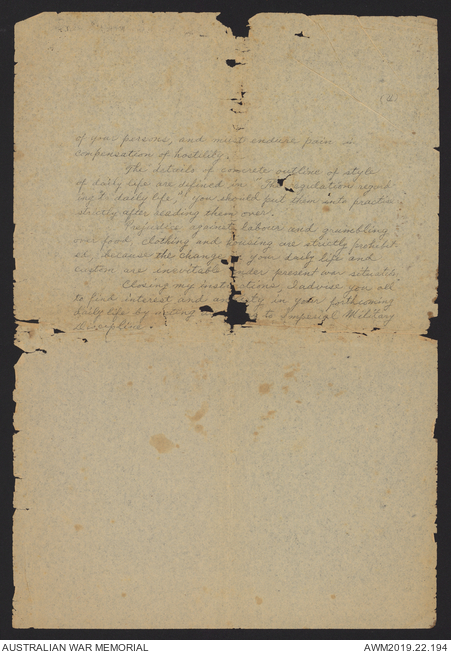 of your persons, and must endure pain in
compensation of hostility.
The details of concrete outline of style
of daily life are defined in "The regulation regard
ing to daily life," you should put them into practice
strictly after reading them over.
Prejudice against labour and grumbling
over food, clothing and housing are strictly prohibit
ed, because the change your daily life and
custom are inevitable under present war
Closing my instructions, I advise you all
to find interest and in your forthcoming
daily life by to Imperial Military
discipline.
AUSTRALIAN WAR MEMORIAL
AWM2019.22.194